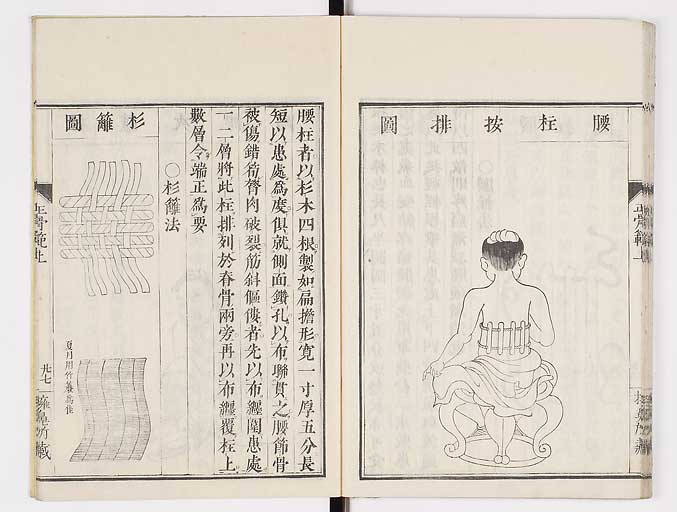 腰柱按排圖
正骨範上
腰柱者以杉木四根製如扁擔形寬一寸厚五分長
短以患處爲度俱就側面鑽孔以布聯貫之腰節骨
被傷錯筍膂肉破裂筋斜傴僂者先以布纏圍患處
一二層將此柱排列於脊骨兩旁再以布纏覆柱上
數層令端正爲要
○杉籬法
杉籬圖
夏月用竹簾爲佳
正骨範上